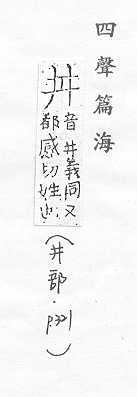 四聲篇海
音井義同又
都感切姓也
(井部·p321)